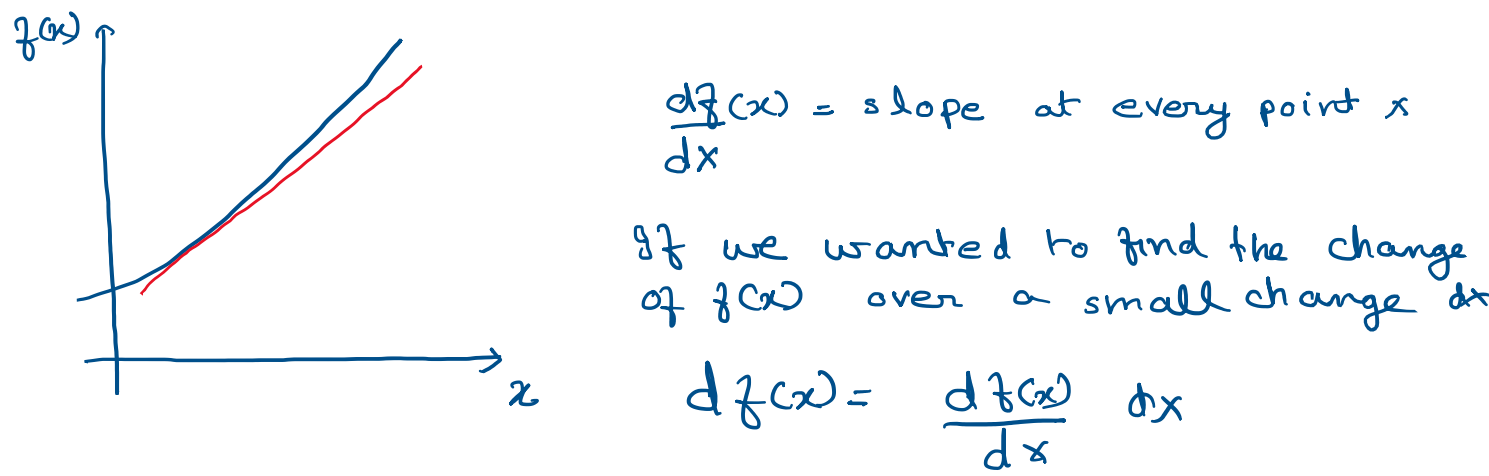 f(x)
x
df/dx (x) = slope at every point x
If we wanted to find the change
of f(x) over a small change dx
df(x) = df(x)/dx dx